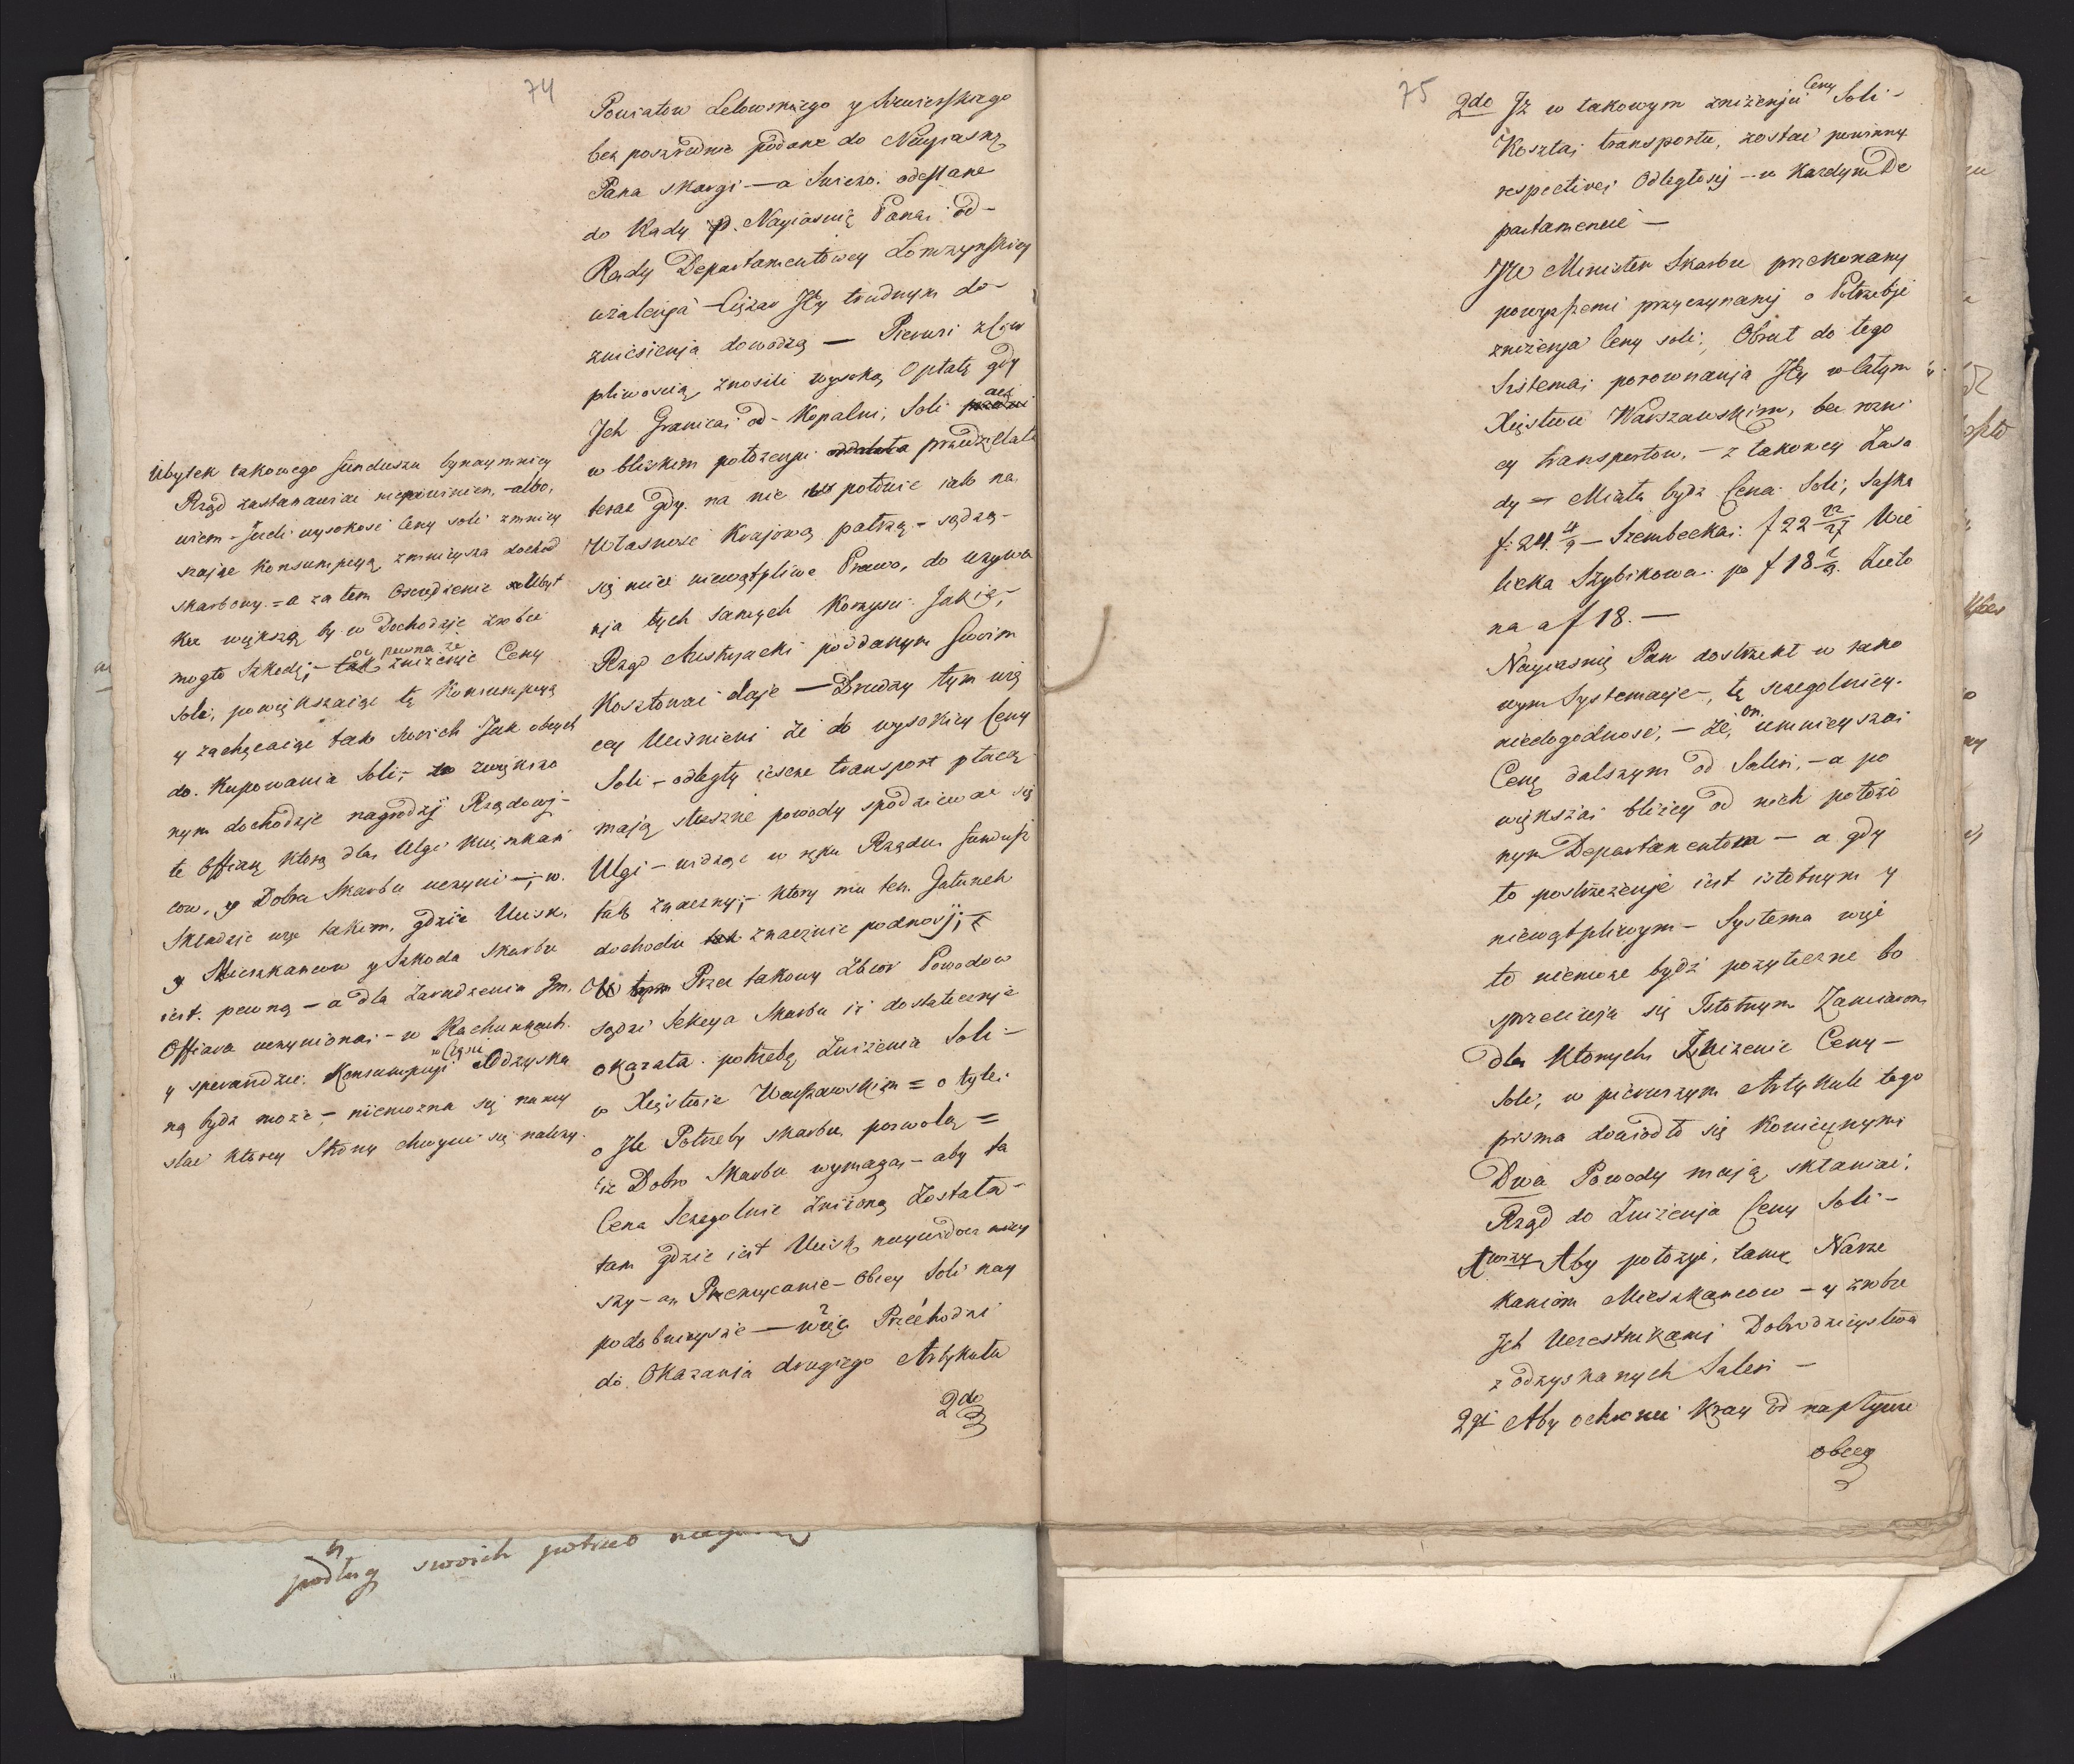 74
Powiatow Lelowskiego y Siewierskiego
bez poszrednie podane do Nayiasnę
Pana skargi — a Swiezo odesłane
do Rady p. Nayiasnię Pana od-
Rady Departamentowey Łomzynskiey
uzalenja — Ciężar Jey trudnym do-
zniesienja dowodzą — Pierwsi z Cier
pliwoscią znosili wysoką Opłatę gdy
Jch Granica od Kopalni Soli acz
w bliskim położenju przedzielała
teraz gdy na nie połnie iako na
Własnosc Krajową patrzą – sądzą –
się miec niewątpliwe Prawo, do uzywa
nja tych samych Korzysci Jakie,
Rząd Austryacki poddanym swoim
Kosztowac daje — Drudzy tym wię
cey Ucisnieni że do wysokiey Ceny
Soli – odległy iescze transport płacą
mają słuszne powody spodziewac się
Ulgi – widząc w ręku Rządu fundusz
tak znaczny; – ktory mu ten Gatunek
dochodu tak znacznie podnosi; –
W tym Przez takowy Zbior Powodow
sądzi Sekcya Skarbu iż dostatecznje
okazała potrzebę Znizenia Soli –
w Xięstwie Warszawskim = o tyle
o Jle Potrzeby skarbu pozwolą =
iz Dobro Skarbu wymaga – aby ta
Cena Sczegolnie Znizoną Została –
tam gdzie iest Ucisk naywidoczniey
szy – a Przemycanie – Obcey Soli nay
podobnieysze — więc Przechodzi
do Okazanja drugiego Artykułu
2do
Ubytek takowego funduszu bynaymniey
Rząd zastanawiac niepowinien, – albo,
wiem – Jezeli wysokosc Ceny soli zmniey
szając Konsumpcyą zmnieysza dochod
skarbowy = a zatem Oszczędzenie Ubyt
ku większą by w Dochodzie Zrobic
mogło Szkodę; – tak pewna że znizenje Ceny
Soli, powiększaiąc tę Konsumpcyą
y zachęcaiąc tak swoich Jak obcych
do Kupowania Soli; – zwiększo
nym dochodzie nagrodzi Rządowi –
te Offiarę którą dla Ulgi Mieszkań
cow, y Dobra Skarbu uczyni –; w
Składzie więc takim, gdzie Ucisk,
y Mieszkancow y Szkoda Skarbu
iest pewną – a dla Zaradzenia Jm,
Offiara uczyniona – w Rachunkach
y sperandzie Konsumpcyi w Części Odzyska
ną bydz może – niemożna się namy
slac którey Strony chwycic się nalezy.
podług swoich potrzeb
75
2do Jz w takowym znizenju Ceny Soli –
Koszta transportu, zostac powinny
respective Odległosci – w Kazdym De
partamencie —
JW Minister Skarbu przekonany
powyzszemi przyczynamj o Potrzebje
znizenja Ceny soli; Obrał do tego
Sistema porownanja Jey w całym
Xięstwie Warszawskim, bez rozni
cy transportow, – z takowey Zasa
dy = Miała bydz Cena Soli, Saska
f: 24. 4/9 – Szembecka: f 22 22/27 Wie
licka Szybikowa: po f 18 2/9. Zielo
na a f 18. —
Nayiasnię Pan dostrzekł w tako
wym Systemacje –, tę sczegolniey.
niedogodnosc, – że, on umnieyszai
Cenę dalszym od Salin, – a po
większai bliżey od nich położo
nym Departamentom — a gdy
to postrzezenje iest istotnym y
niewątpliwym – Systema więc
to niemoze bydz pozyteczne bo
sprzeciwja się Istotnym Zamiarom
dla Ktorych Znizenie Ceny –
Soli; w pierwszym Artykule tego
pisma dowiodło się Koniecznymi
Dwa Powody mają skłaniac,
Rząd do Znizenja Ceny Soli –
1wszy Aby położyc, tamę Narze
kaniom Mieszkancow – y zrobic
Jch Uczestnikami Dobrodzieystwa
z odzyskanych Salin —
2gi Aby ochronic Kray od napływu
obcey